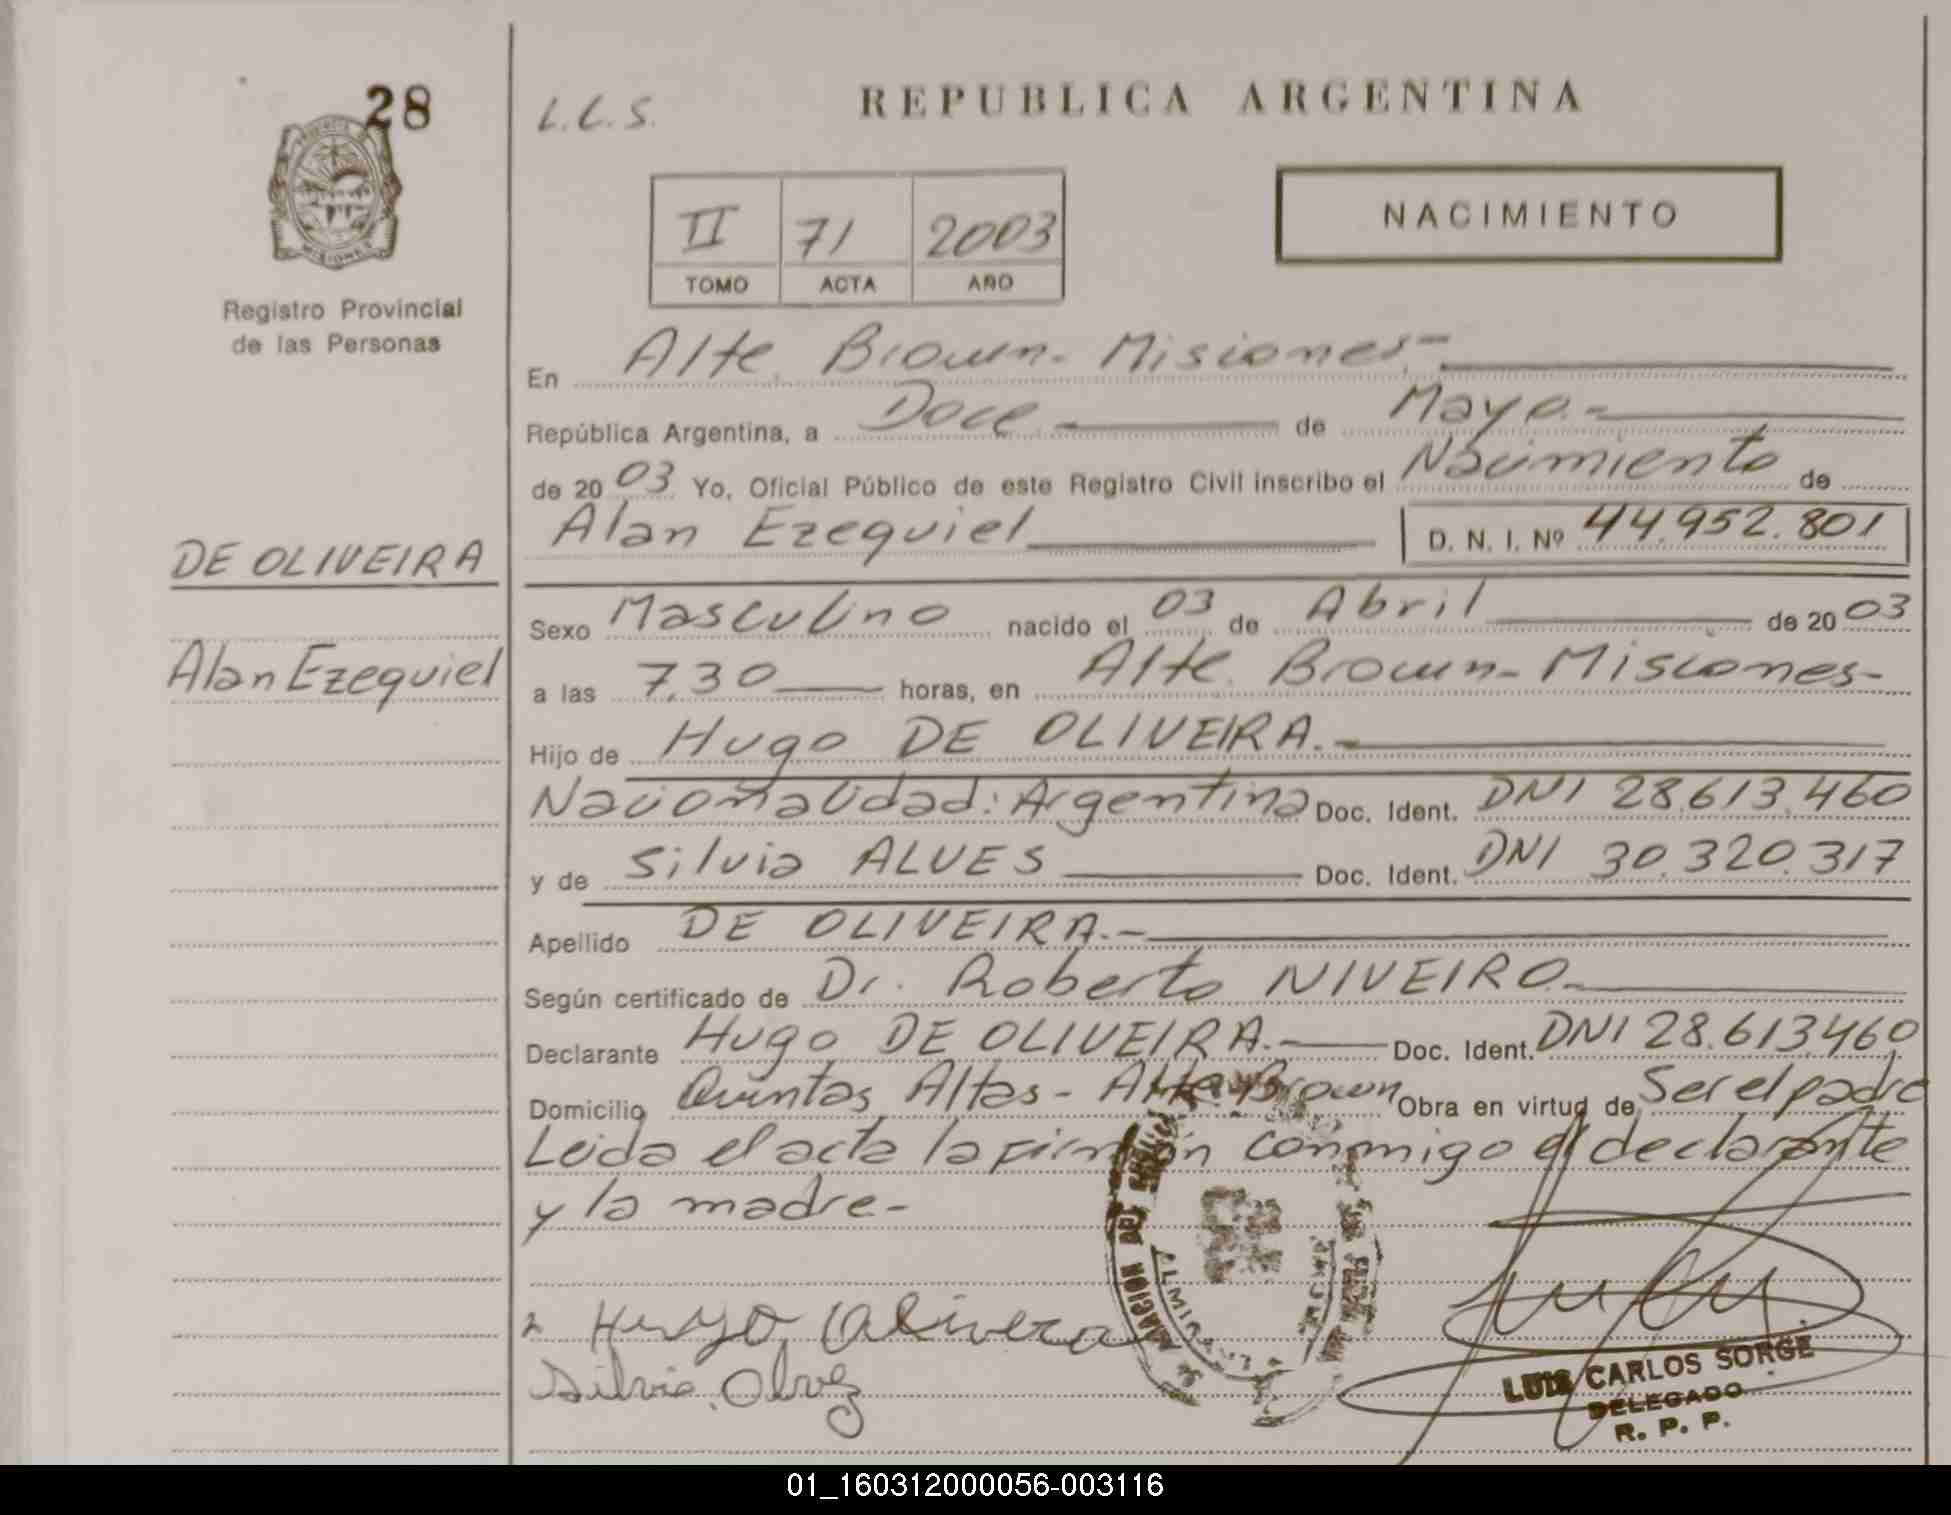 28
L.C.S.
REPUBLICA ARGENTINA
PROVINCIA DE
MISIONES
II 71 2003
TOMO ACTA AÑO
NACIMIENTO
Registro Provincial
de las Personas
En Alte. Brown - Misiones.-
República Argentina, a Doce de Mayo.-
de 2003 Yo, Oficial Público de este Registro Civil inscribo el Nacimiento de
Alan Ezequiel D. N. I. Nº 44.952.801
DE OLIVEIRA
Alan Ezequiel
Sexo Masculino nacido el 03 de Abril de 2003
a las 7,30 horas, en Alte. Brown - Misiones-
Hijo de Hugo DE OLIVEIRA.-
Nacionalidad: Argentina Doc. Ident. DNI 28.613.460
y de Silvia ALVES Doc. Ident. DNI 30.320.317
Apellido DE OLIVEIRA.-
Según certificado de Dr. Roberto NIVEIRO.-
Declarante Hugo DE OLIVEIRA.- Doc. Ident. DNI 28.613.460
Domicilio Quintas Altas - Alte. Brown Obra en virtud de Ser el padre
Leida el acta la firman conmigo el declarante
y la madre-
Hugo Olivera
Silvia Alvez
LUIS CARLOS SORGE
DELEGADO
R. P. P.
01_160312000056-003116